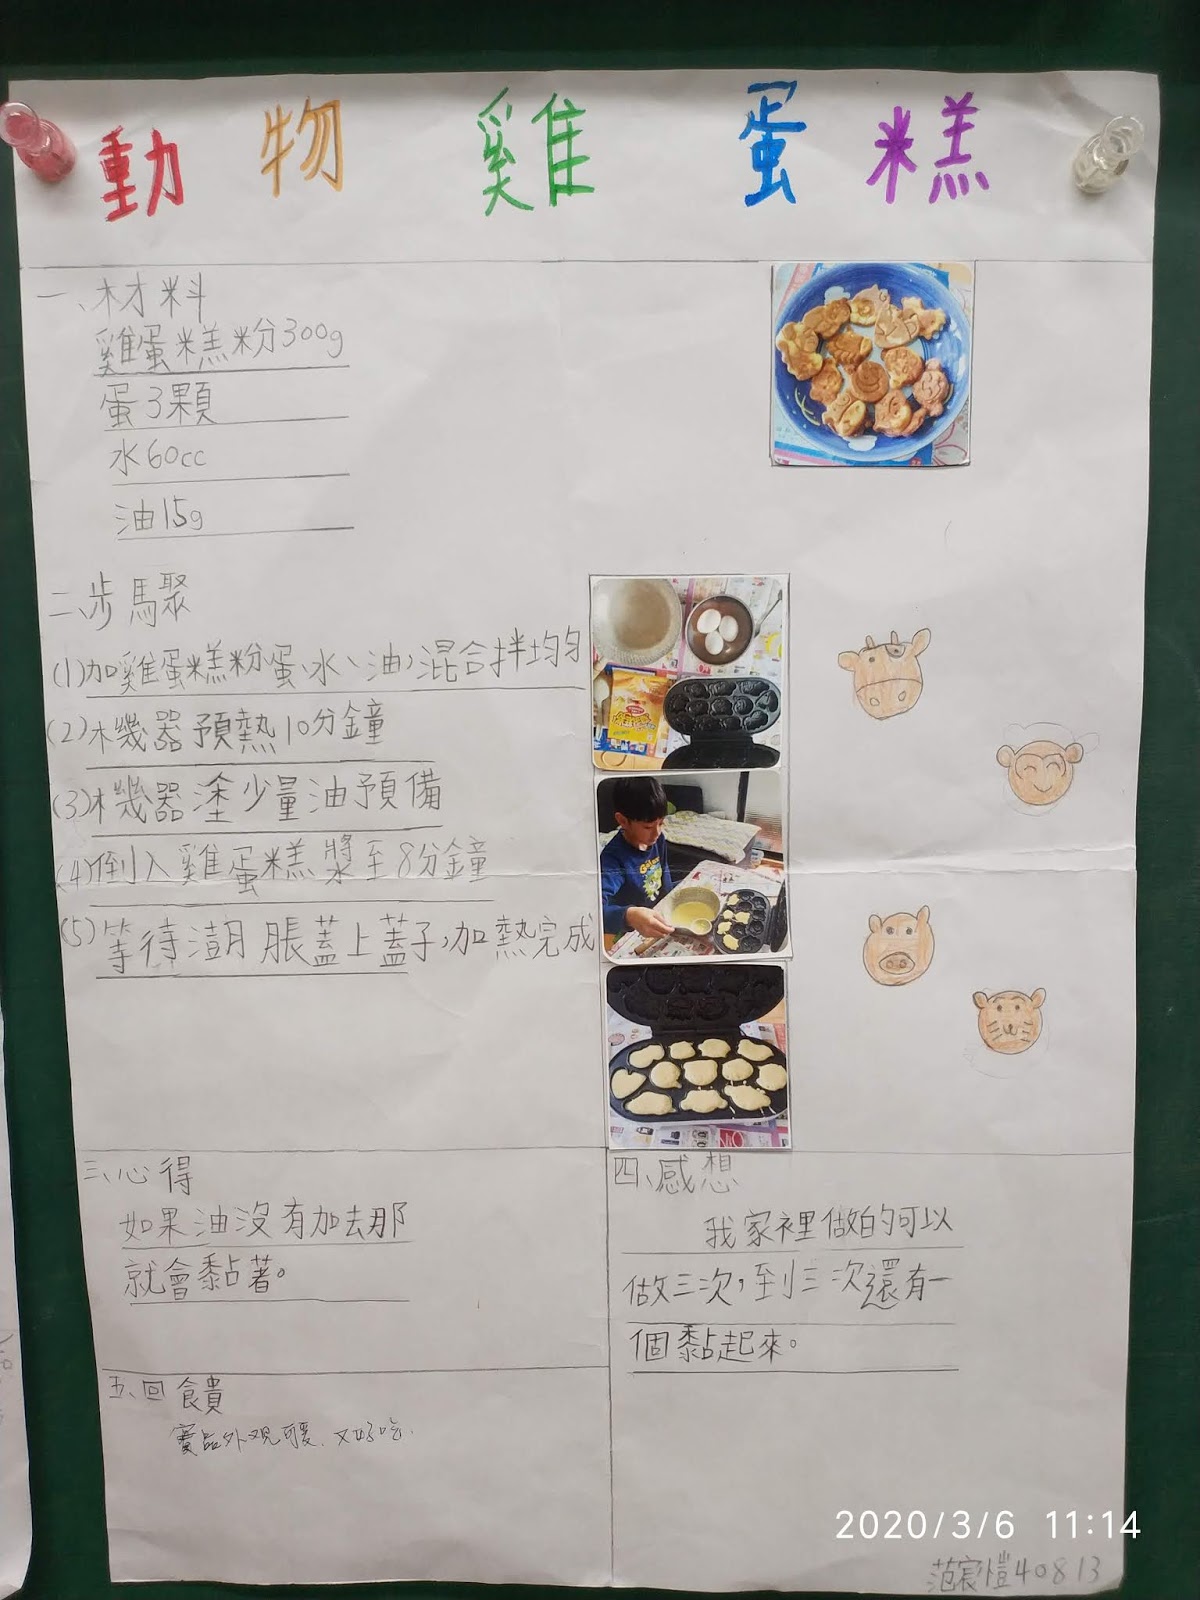 動物雞蛋糕
一、材料
雞蛋糕粉300g
蛋3顆
水60cc
油15g
二、步驟
(1)加雞蛋糕粉蛋、水、油,混合拌均勻
(2)機器預熱10分鐘
(3)機器塗少量油預備
(4)倒入雞蛋糕漿至8分鐘
(5)等待澎脹蓋上蓋子,加熱完成
三、心得
如果油沒有加去那
就會黏著。
四、感想
我家裡做的可以
做三次,到三次還有一
個黏起來。
五、回饋
實品外觀可愛、又好吃.
2020/3/6 11:14
范宸愷40813